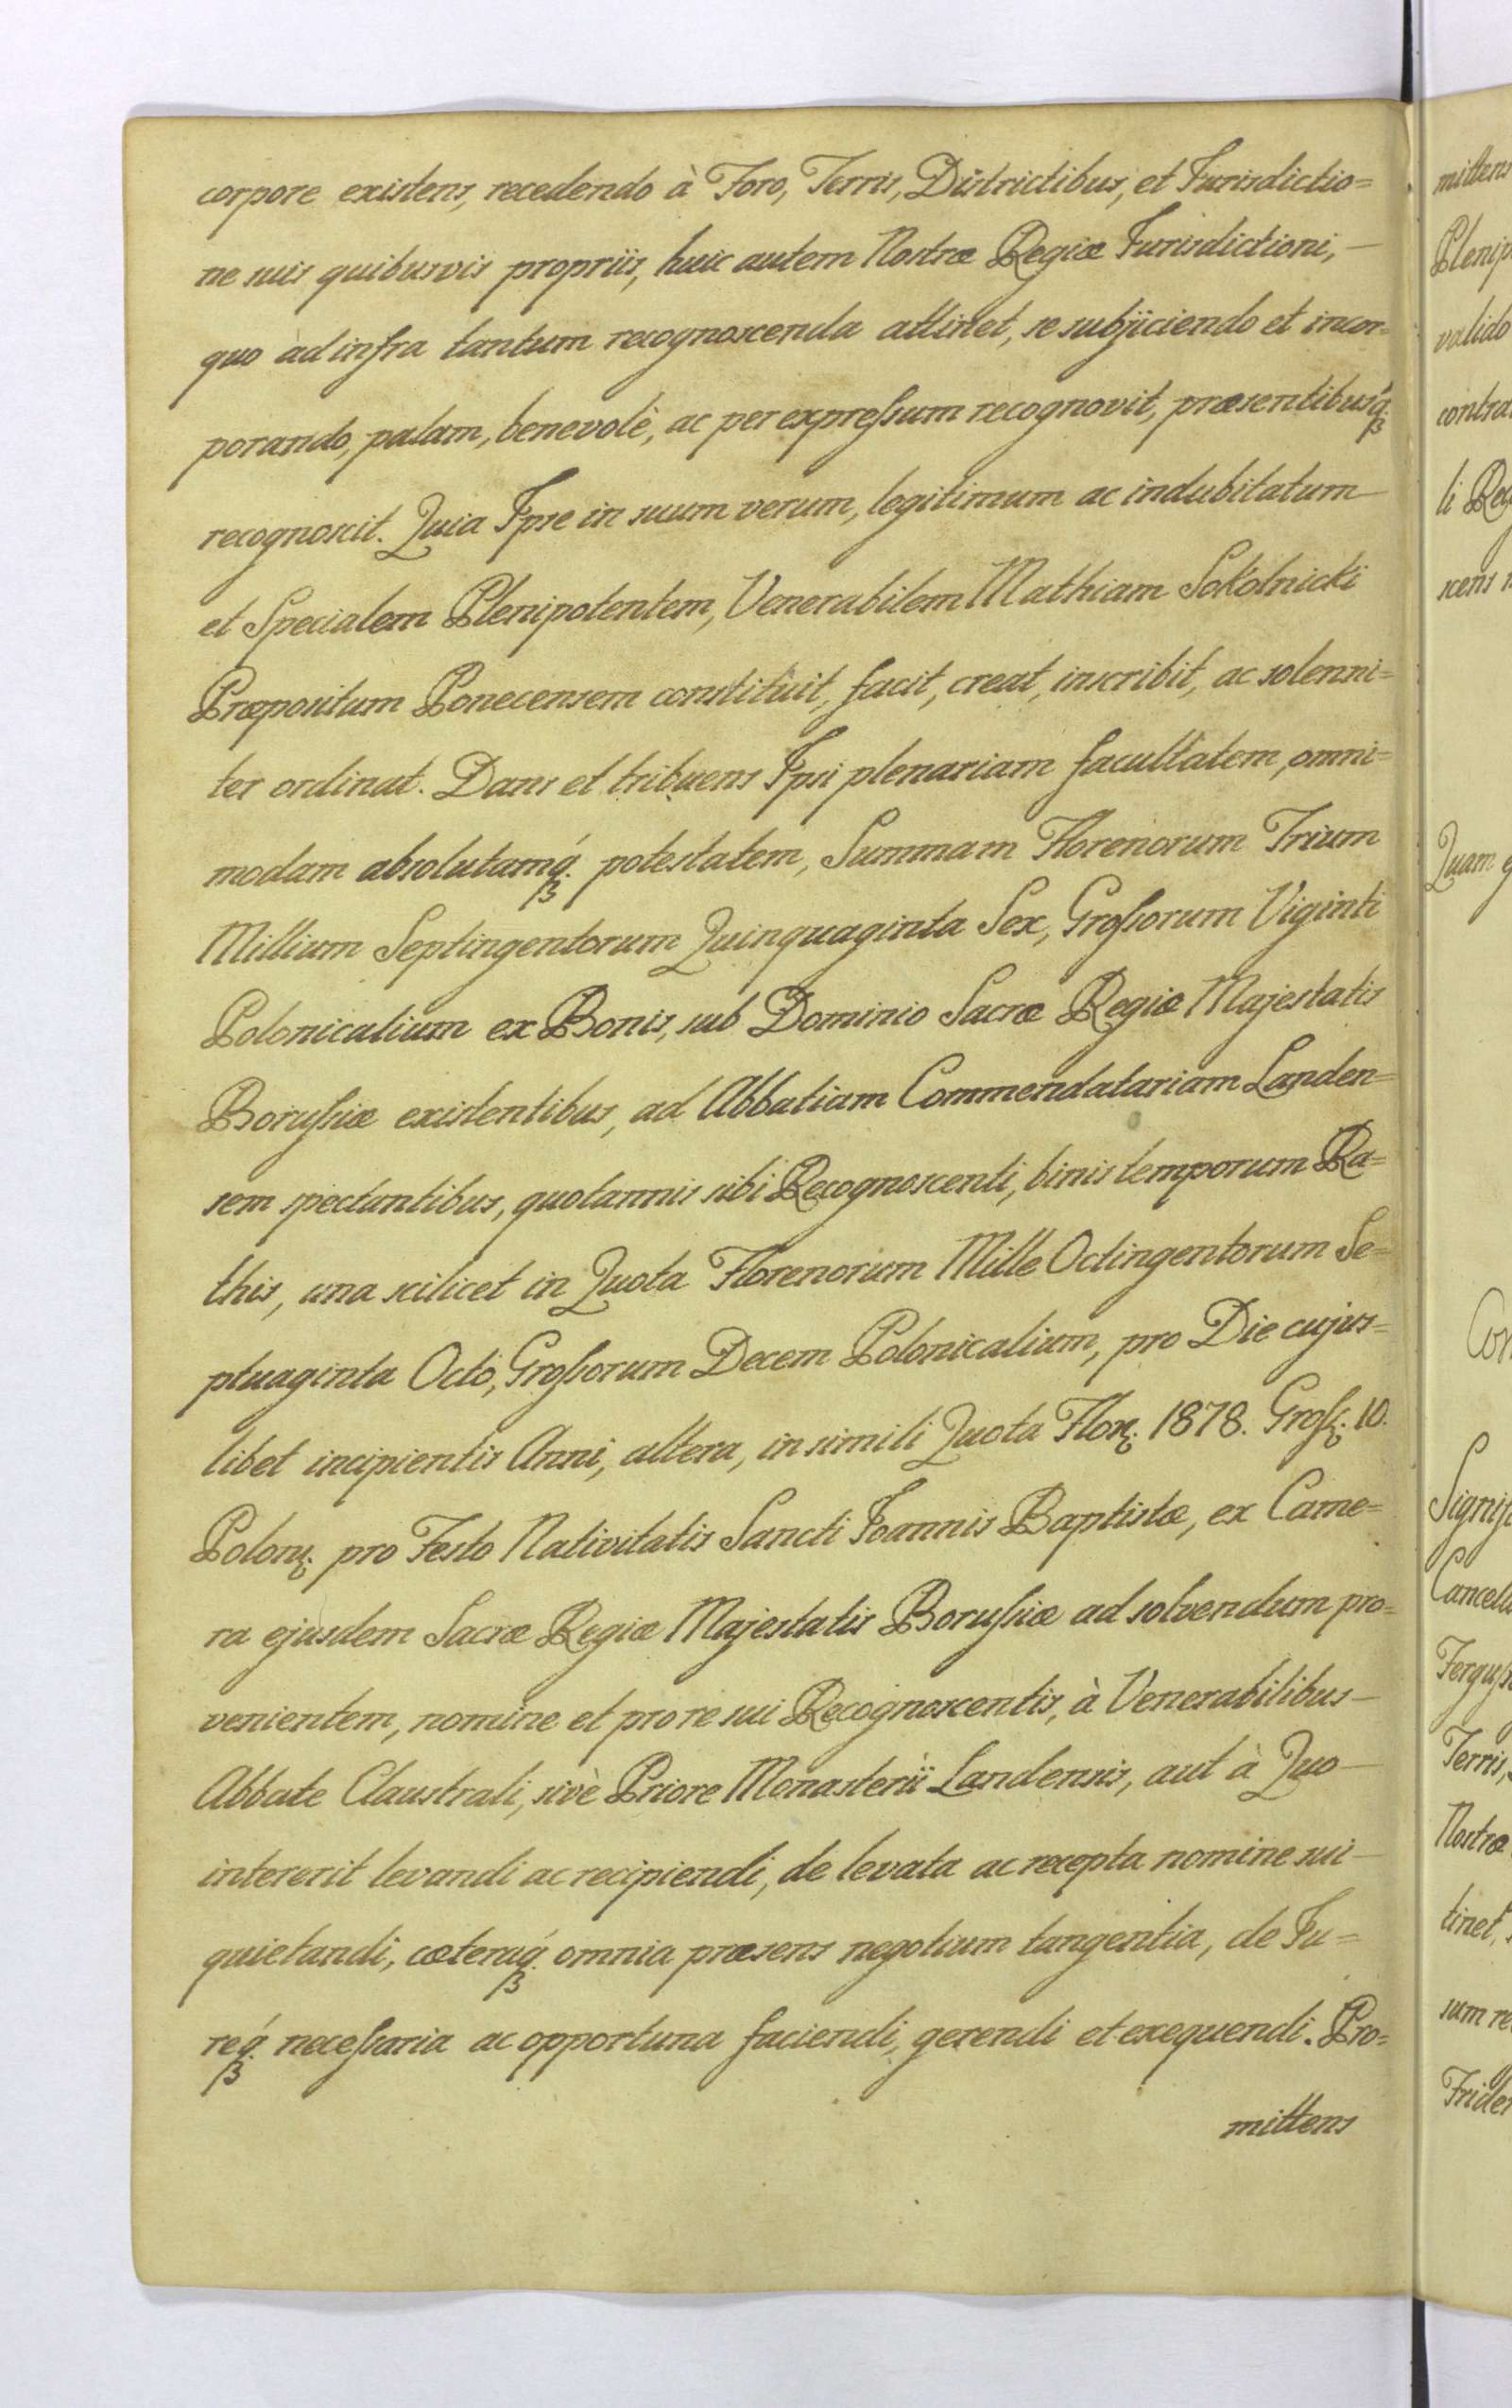 corpore existens, recedendo à Foro, Terris, Districtibus, et Jurisdictio=
ne suis quibusvis propriis, huic autem Nostræ Regiæ Jurisdictioni,—
quo ad infra tantum recognoscenda attinet, se subjiciendo et incor=
porando, palam, benevolè, ac per expreſsum recognovit, præsentibusq́ꝫ
recognoscit. Quia Ipse in suum verum, legitimum ac indubitatum—
et Specialem Plenipotentem, Venerabilem Mathiam Sokolnicki
Præpositum Ponecensem constituit, facit, creat, inscribit, ac solenni=
ter ordinat. Dans et tribuens Ipsi plenariam facultatem, omni=
modam absolutamq́ꝫ potestatem, Summam Florenorum Trium
Millium Septingentorum Quinquaginta Sex, Groſsorum Viginti
Polonicalium ex Bonis, sub Dominio Sacræ Regiæ Majestatis
Boruſsiæ existentibus, ad Abbatiam Commendatariam Landen=
sem spectantibus, quotannis sibi Recognoscenti, binis temporum Ra=
this, una scilicet in Quota Florenorum Mille Octingentorum Se=
ptuaginta Octo, Groſsorum Decem Polonicalium, pro Die cujus=
libet incipientis Anni, altera, in simili Quota Flor: 1878. Groſs: 10.
Polon: pro Festo Nativitatis Sancti Joannis Baptistæ, ex Came=
ra ejusdem Sacræ Regiæ Majestatis Boruſsiæ ad solvendum pro=
venientem, nomine et pro re sui Recognoscentis, à Venerabilibus—
Abbate Claustrali, sivè Priore Monasterii Landensis, aut à Quo—
intererit levandi ac recipiendi, de levata ac recepta nomine sui—
quietandi, cæteraq́ꝫ omnia præsens negotium tangentia, de Ju=
req́ꝫ neceſsaria ac opportuna faciendi, gerendi et exequendi. Pro=
mittens
mittens
Plenip
valido
contra
li Reg
scens
Quam
Con
Signif
Cancell
Ferguſs
Terris,
Nostræ
tinet,
sum re
Frider